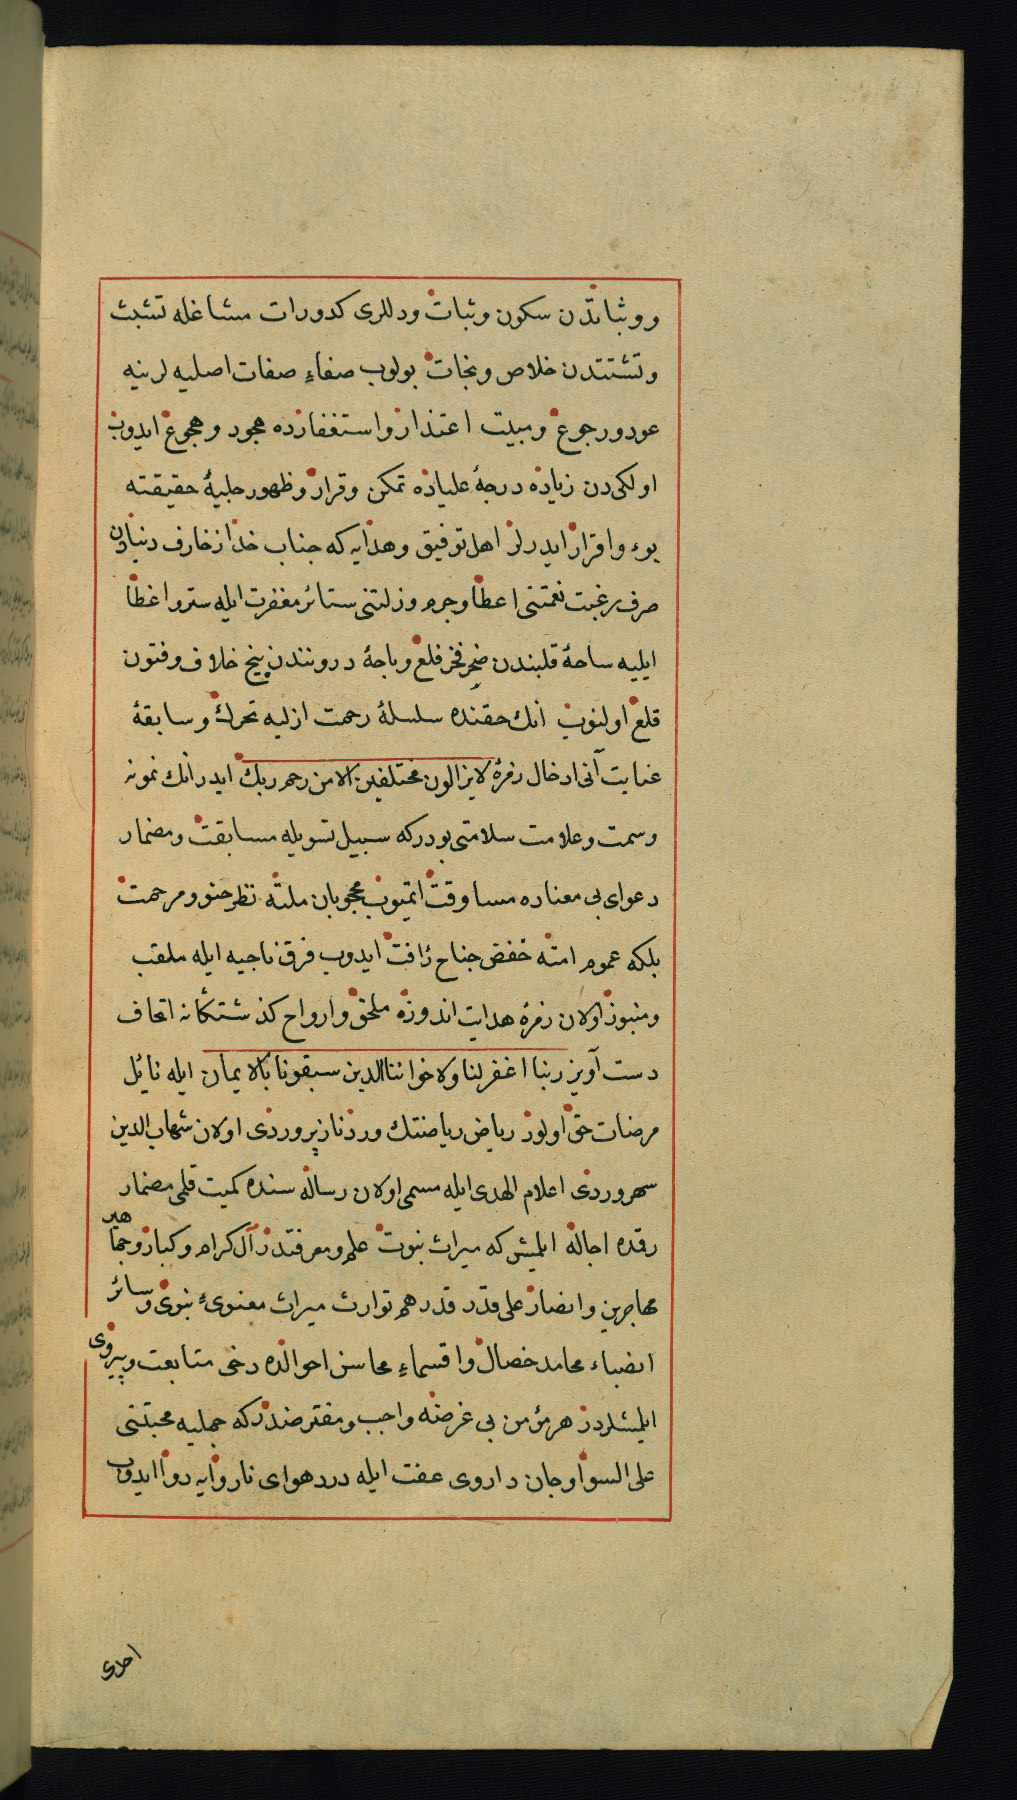 و وثباتدن سكون وثبات ودللرى كدورات مشاغله تشبث
وتشتتدن خلاص ونجات بولوب صفاء صفات اصليه لرينه
عود ورجوع ومبيت اعتذار واستغفارده هجود وهجوع ايدوب
اولكى دن زياده درجهٔ علياده تمكن وقرار وظهور حليهٔ حقيقته
بوء واقرار ايدرلر اهل توفيق وهدايه كه جناب خدا زخارف دنيادن
صرف رغبت نعمتنى اعطا وجرم وزلتنى ستائر مغفرت ايله ستر واغطا
ايليه ساحهٔ قلبندن فخر قلع وباجهٔ دروننندن بيخ خلاف وفتون
قلع اولنوب انك حقنده سلسلهٔ رحمت ازليه تحرك وسابقهٔ
عنايت آنى ادخال زمرهٔ لايزالون مختلفين الا من رحم ربك ايدر انك نمونه
وسمت وعلامت سلامتى بودركه سبيل تسويله مسابقت ومضمار
دعواى بى معناده مساوقت اتميوب محجوبان ملته نظر حنو ومرحمت
بلكه عموم امته خفض جناح رأفت ايدوب فرق ناجيه ايله ملقب
ومنبوز اولان زمرهٔ هدايت اندوزه ملحق وارواح كذشتكانه اتحاف
دست آويز ربنا اغفر لنا ولاخواننا الذين سبقونا بالايمان ايله نائل
مرضات حق اولور رياض رياضتك ورد ناز پروردى اولان شهاب الدين
سهروردى اعلام الهدى ايله مسمى اولان رساله سنده كميت قلمى مضمار
رقده اجاله ايلمش كه ميراث نبوت علم ومعرفتدر آل كرام وكبار وجماهير
مهاجرين وانصار على قدر قدرهم توارث ميراث معنوىٔ نبوى وسائر
انصباء محامد خصال واقسماء محاسن احوالده دخى متابعت وپيروى
ايلمشلردر هر مؤمن بى غرضه واجب ومفترضدر كه جمليه محبتنى
على السوا وجان داروى عفت ايله درد هواى ناروايه دوا ايدوب